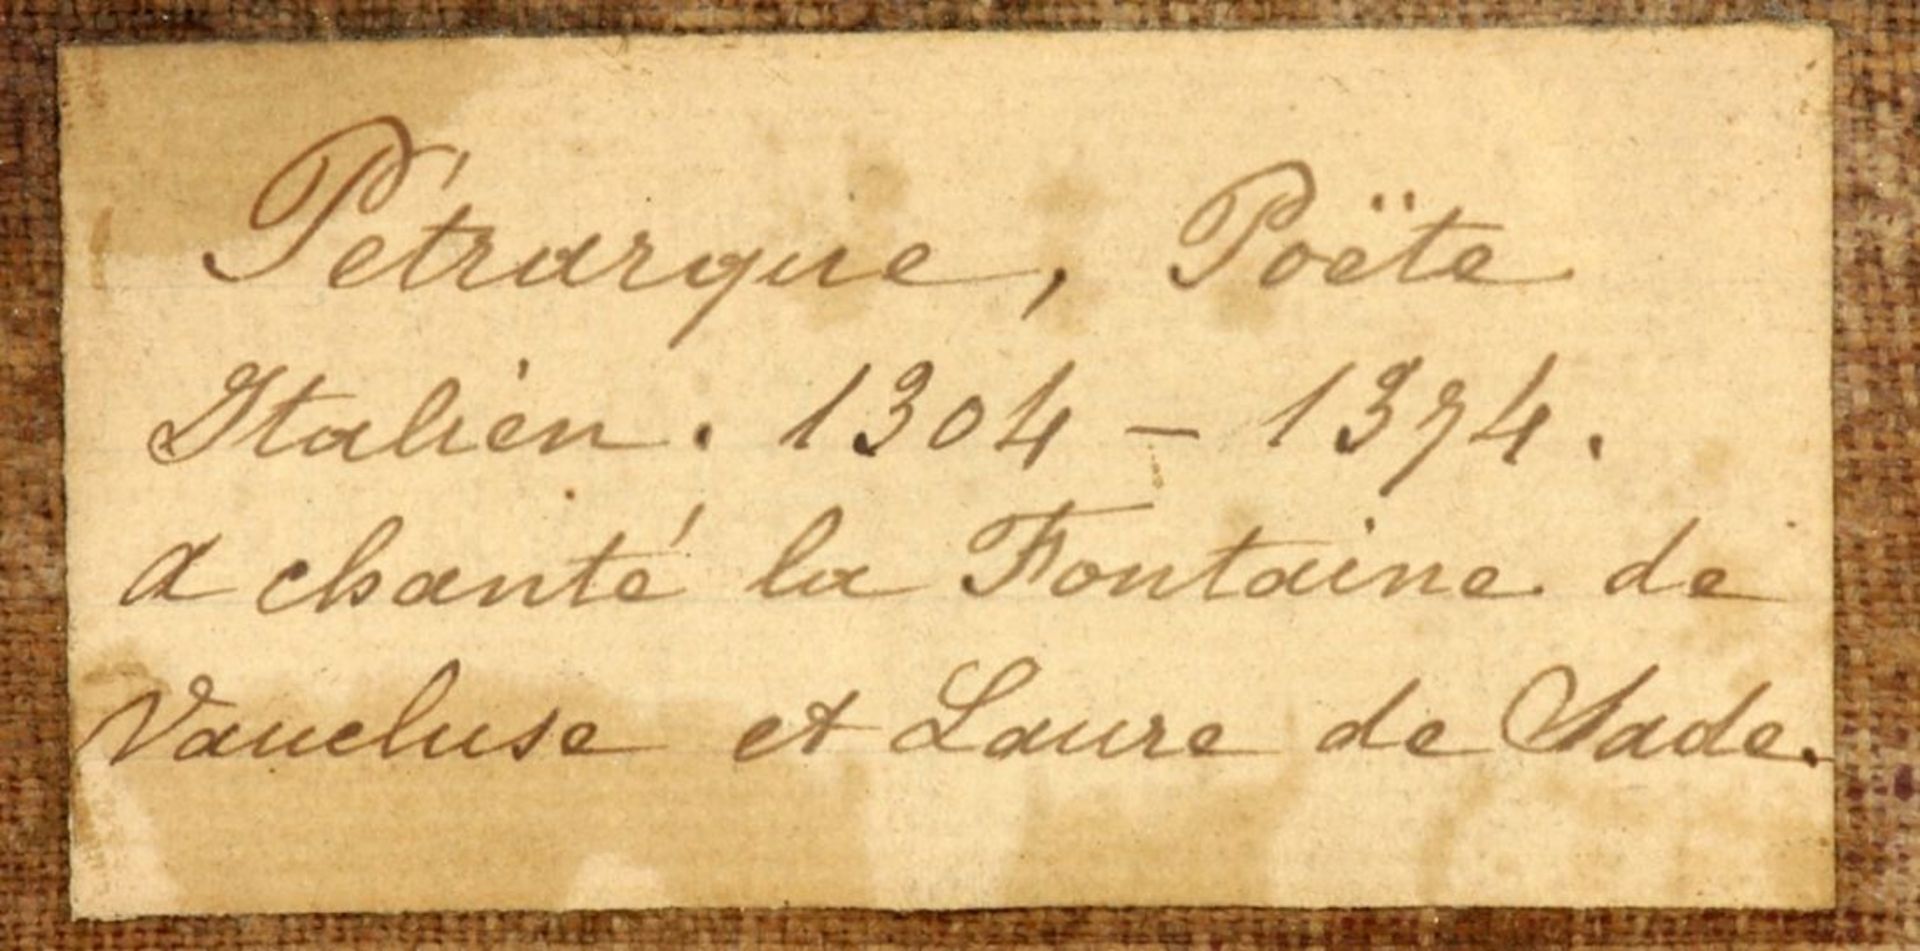 Pétrarque, Poëte
Italien. 1304 - 1374.
a chanté la Fontaine de
Vaucluse et Laure de Sade.